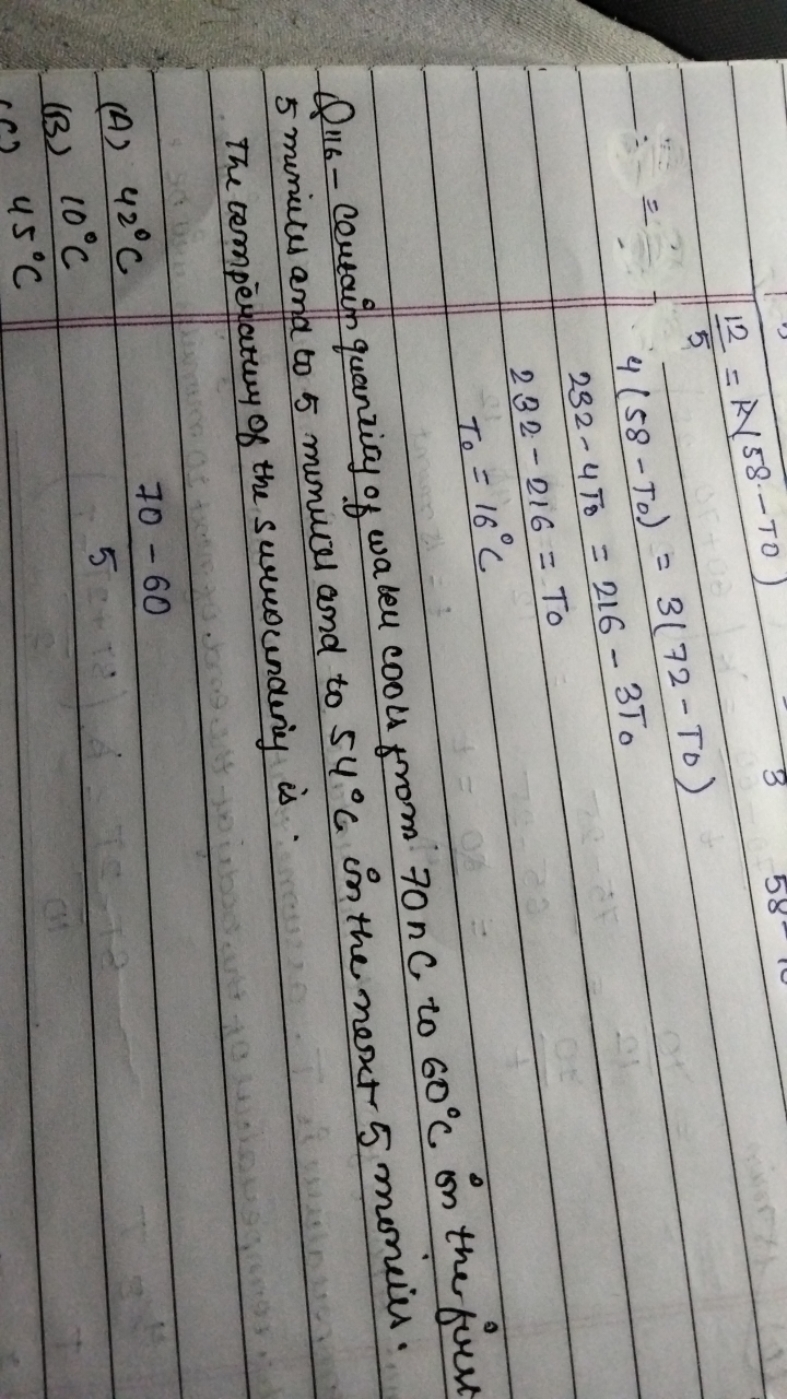 12/5 = k(58 - T0)
4(58 - T0) = 3(72 - T0)
232 - 4T0 = 216 - 3T0
232 - 216 = T0
T0 = 16°C
Q116 - Certain quantity of water cools from 70 n C to 60°C in the first
5 minutes and to 5 minutes and to 54°C in the next 5 minutes.
The temperature of the surrounding is.
(A) 42°C
(B) 10°C
(C) 45°C
70 - 60
5